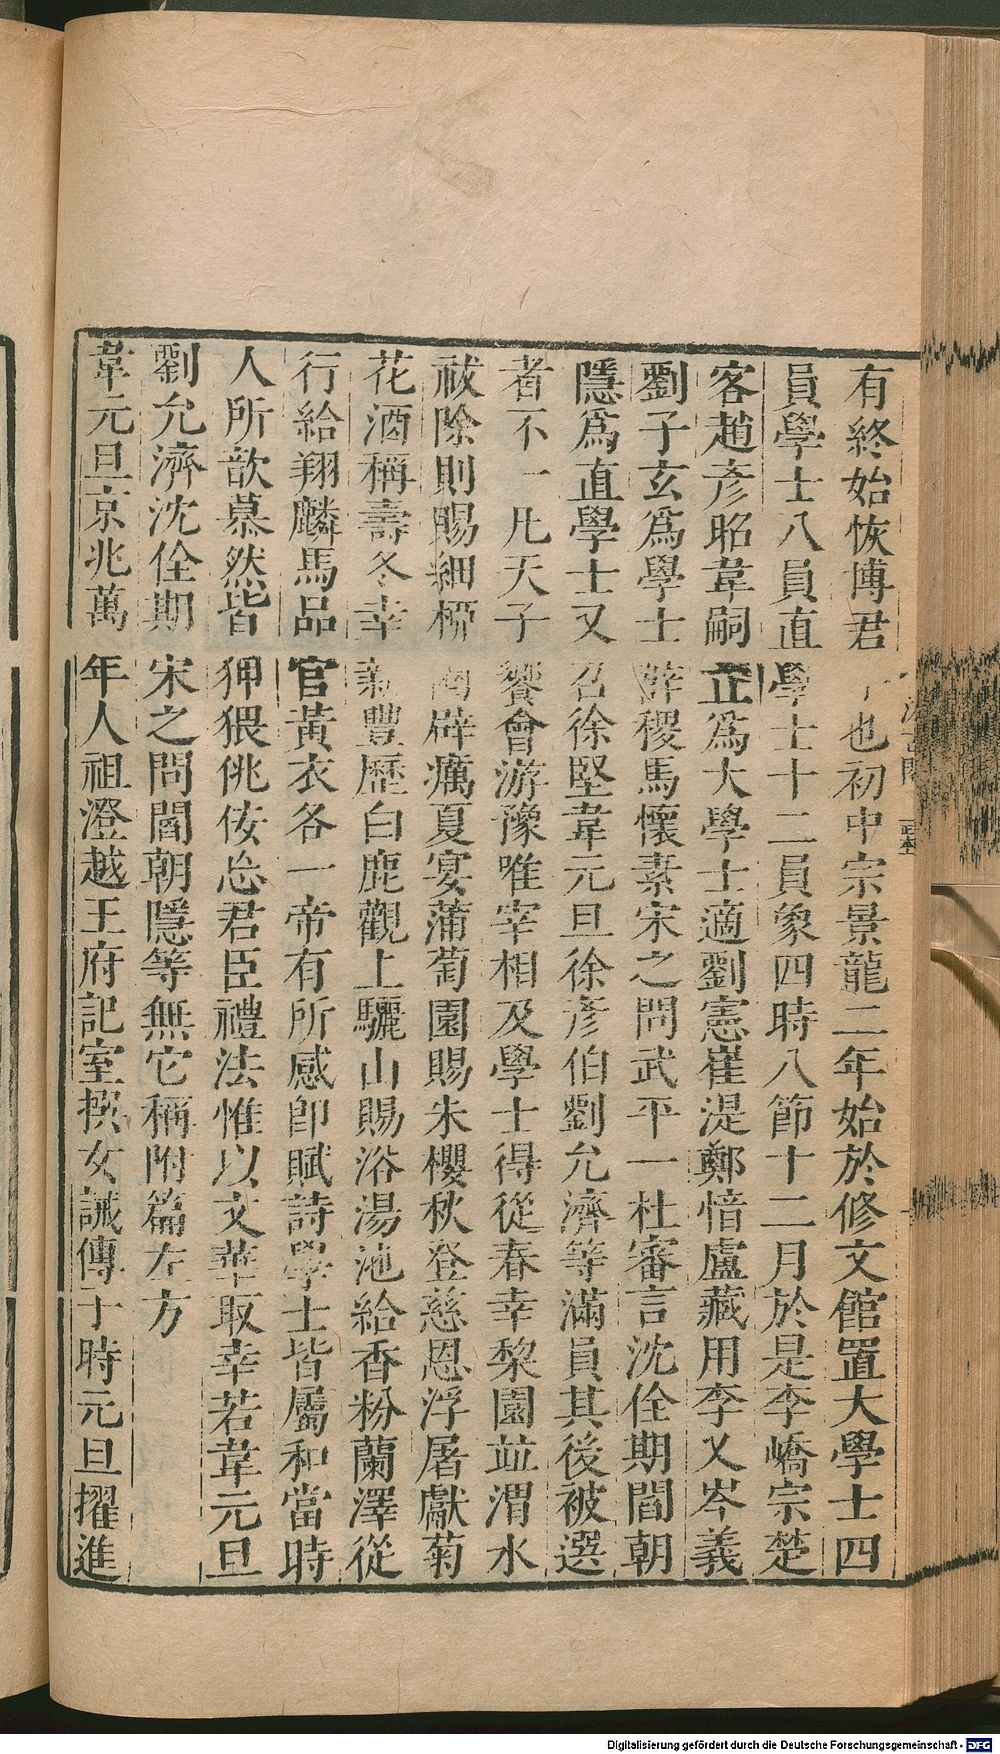 有終始恢博君子也初中宗景龍二年始於修文館置大學士四
員學士八員直學士十二員象四時八節十二月於是李嶠宗楚
客趙彥昭韋嗣立爲大學士適劉憲崔湜鄭愔盧藏用李乂岑羲
劉子玄爲學士薛稷馬懷素宋之問武平一杜審言沈佺期閻朝
隱爲直學士又召徐堅韋元旦徐彥伯劉允濟等滿員其後被選
者不一凡天子饗會游豫唯宰相及學士得從春幸棃園竝渭水
祓除則賜細柳圈辟癘夏宴蒲萄園賜朱櫻秋登慈恩浮屠獻菊
花酒稱壽冬幸新豐歷白鹿觀上驪山賜浴湯池給香粉蘭澤從
行給翔麟馬品官黃衣各一帝有所感卽賦詩學士皆屬和當時
人所歆慕然皆狎猥佻佞忘君臣禮法惟以文華取幸若韋元旦
劉允濟沈佺期宋之問閻朝隱等無它稱附篇左方
韋元旦京兆萬年人祖澄越王府記室撰女誡傳于時元旦擢進
Digitalisierung gefördert durch die Deutsche Forschungsgemeinschaft - DFG